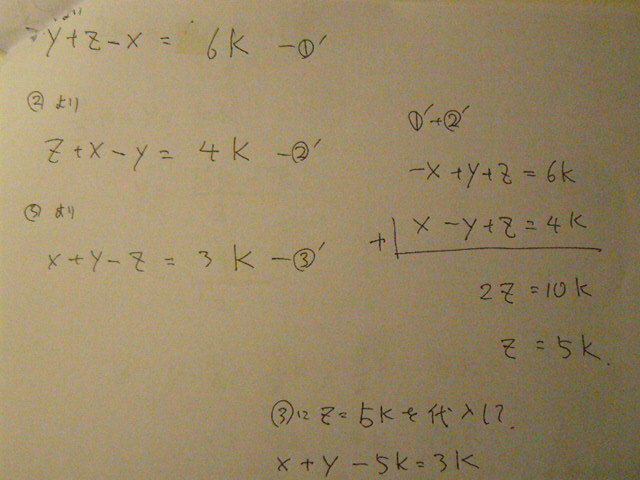 y+z-x = 6k -①'
②より
z+x-y = 4k -②'
③より
x+y-z = 3k -③'
①'+②'
-x+y+z = 6k
+ x-y+z = 4k
2z = 10k
z = 5k.
③にz = 5kを代入して.
x+y-5k = 3k